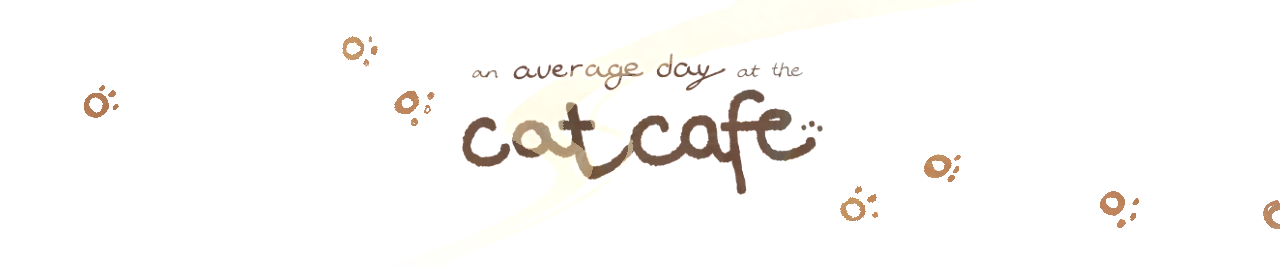 an average day at the
cat cafe